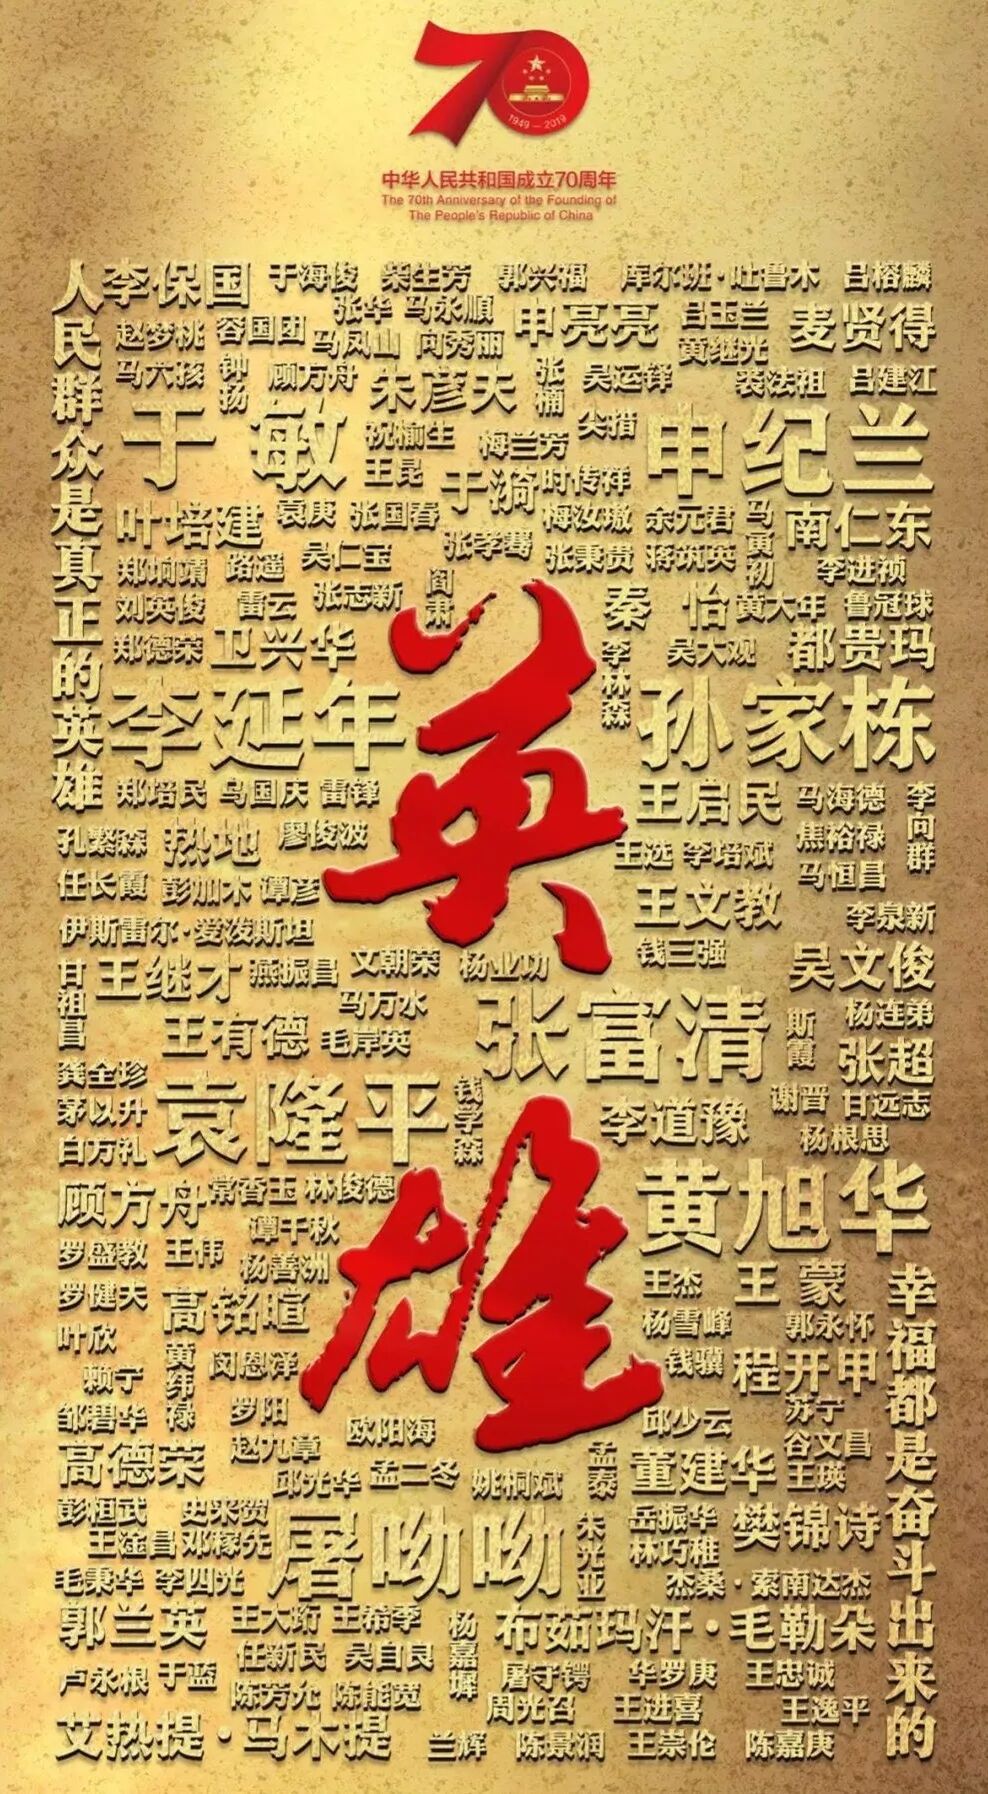 70
1949—2019
中华人民共和国成立70周年
The 70th Anniversary of the Founding of
The People's Republic of China
人民群众是真正的英雄
李保国 于海俊 柴生芳 郭兴福 库尔班·吐鲁木 吕榕麟
张华 马永順 申亮亮 吕玉兰 麦贤得
赵梦桃 容国团 马凤山 向秀丽 黄继光
马六孩 钟扬 顾方舟 朱彦夫 张楠 吴运铎 裴法祖 吕建江
于敏 祝榆生 梅兰芳 尖措 申纪兰
王昆 于漪 时传祥
叶培建 袁庚 张国春 梅汝璈 余元君 马勇初 南仁东
郑垧靖 路遥 吴仁宝 张孝骞 张秉贵 蒋筑英 李进祯
刘英俊 雷云 张志新 阎肃 秦怡 黄大年 鲁冠球
郑德荣 卫兴华 李林森 吴大观 都贵玛
李延年 孙家栋
英雄
郑培民 乌国庆 雷锋 王启民 马海德 李向群
孔繁森 热地 廖俊波 王选 李培斌 焦裕禄
任长霞 彭加木 谭彦 王文教 马恒昌
伊斯雷尔·爱泼斯坦 钱三强 李泉新
甘祖昌 王继才 燕振昌 文朝荣 杨业功 吴文俊
马万水 张富清 斯霞 杨连弟
王有德 毛岸英 张超
龚全珍 袁隆平 钱学森 李道豫 谢晋 甘远志
茅以升 杨根思
白方礼
顾方舟 常香玉 林俊德 黄旭华
谭千秋
罗盛教 王伟 杨善洲 王杰 王蒙
罗健夫 高铭暄 杨雪峰 郭永怀
叶欣 黄纬禄 闵恩泽 钱骥 程开甲
赖宁
邹碧华 罗阳 欧阳海 邱少云 苏宁
高德荣 赵九章 孟泰 董建华 谷文昌
邱光华 孟二冬 姚桐斌 王瑛
彭桓武 史来贺 屠呦呦 朱光亚 岳振华 樊锦诗
王淦昌 邓稼先 林巧稚
毛秉华 李四光 杰桑·索南达杰
郭兰英 王大珩 王希季 杨嘉墀 布茹玛汗·毛勒朵
卢永根 于蓝 任新民 吴自良 屠守锷 华罗庚 王忠诚
陈芳允 陈能宽 周光召 王进喜 王逸平
艾热提·马木提 兰辉 陈景润 王崇伦 陈嘉庚
幸福都是奋斗出来的